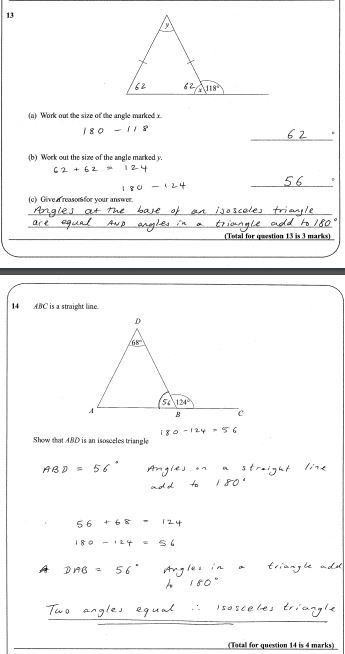 13
y
62
62
x
118°
(a) Work out the size of the angle marked x.
180 - 118
62 °
(b) Work out the size of the angle marked y.
62 + 62 = 124
180 - 124
56 °
(c) Give reasons for your answer.
Angles at the base of an isosceles triangle
are equal AND angles in a triangle add to 180°
(Total for question 13 is 3 marks)
14 ABC is a straight line.
D
68°
56
124°
A
B
C
180 - 124 = 56
Show that ABD is an isosceles triangle
ABD = 56° Angles on a straight line
add to 180°
56 + 68 = 124
180 - 124 = 56
DAB = 56° Angles in a triangle add
to 180°
Two angles equal ∴ isosceles triangle
(Total for question 14 is 4 marks)